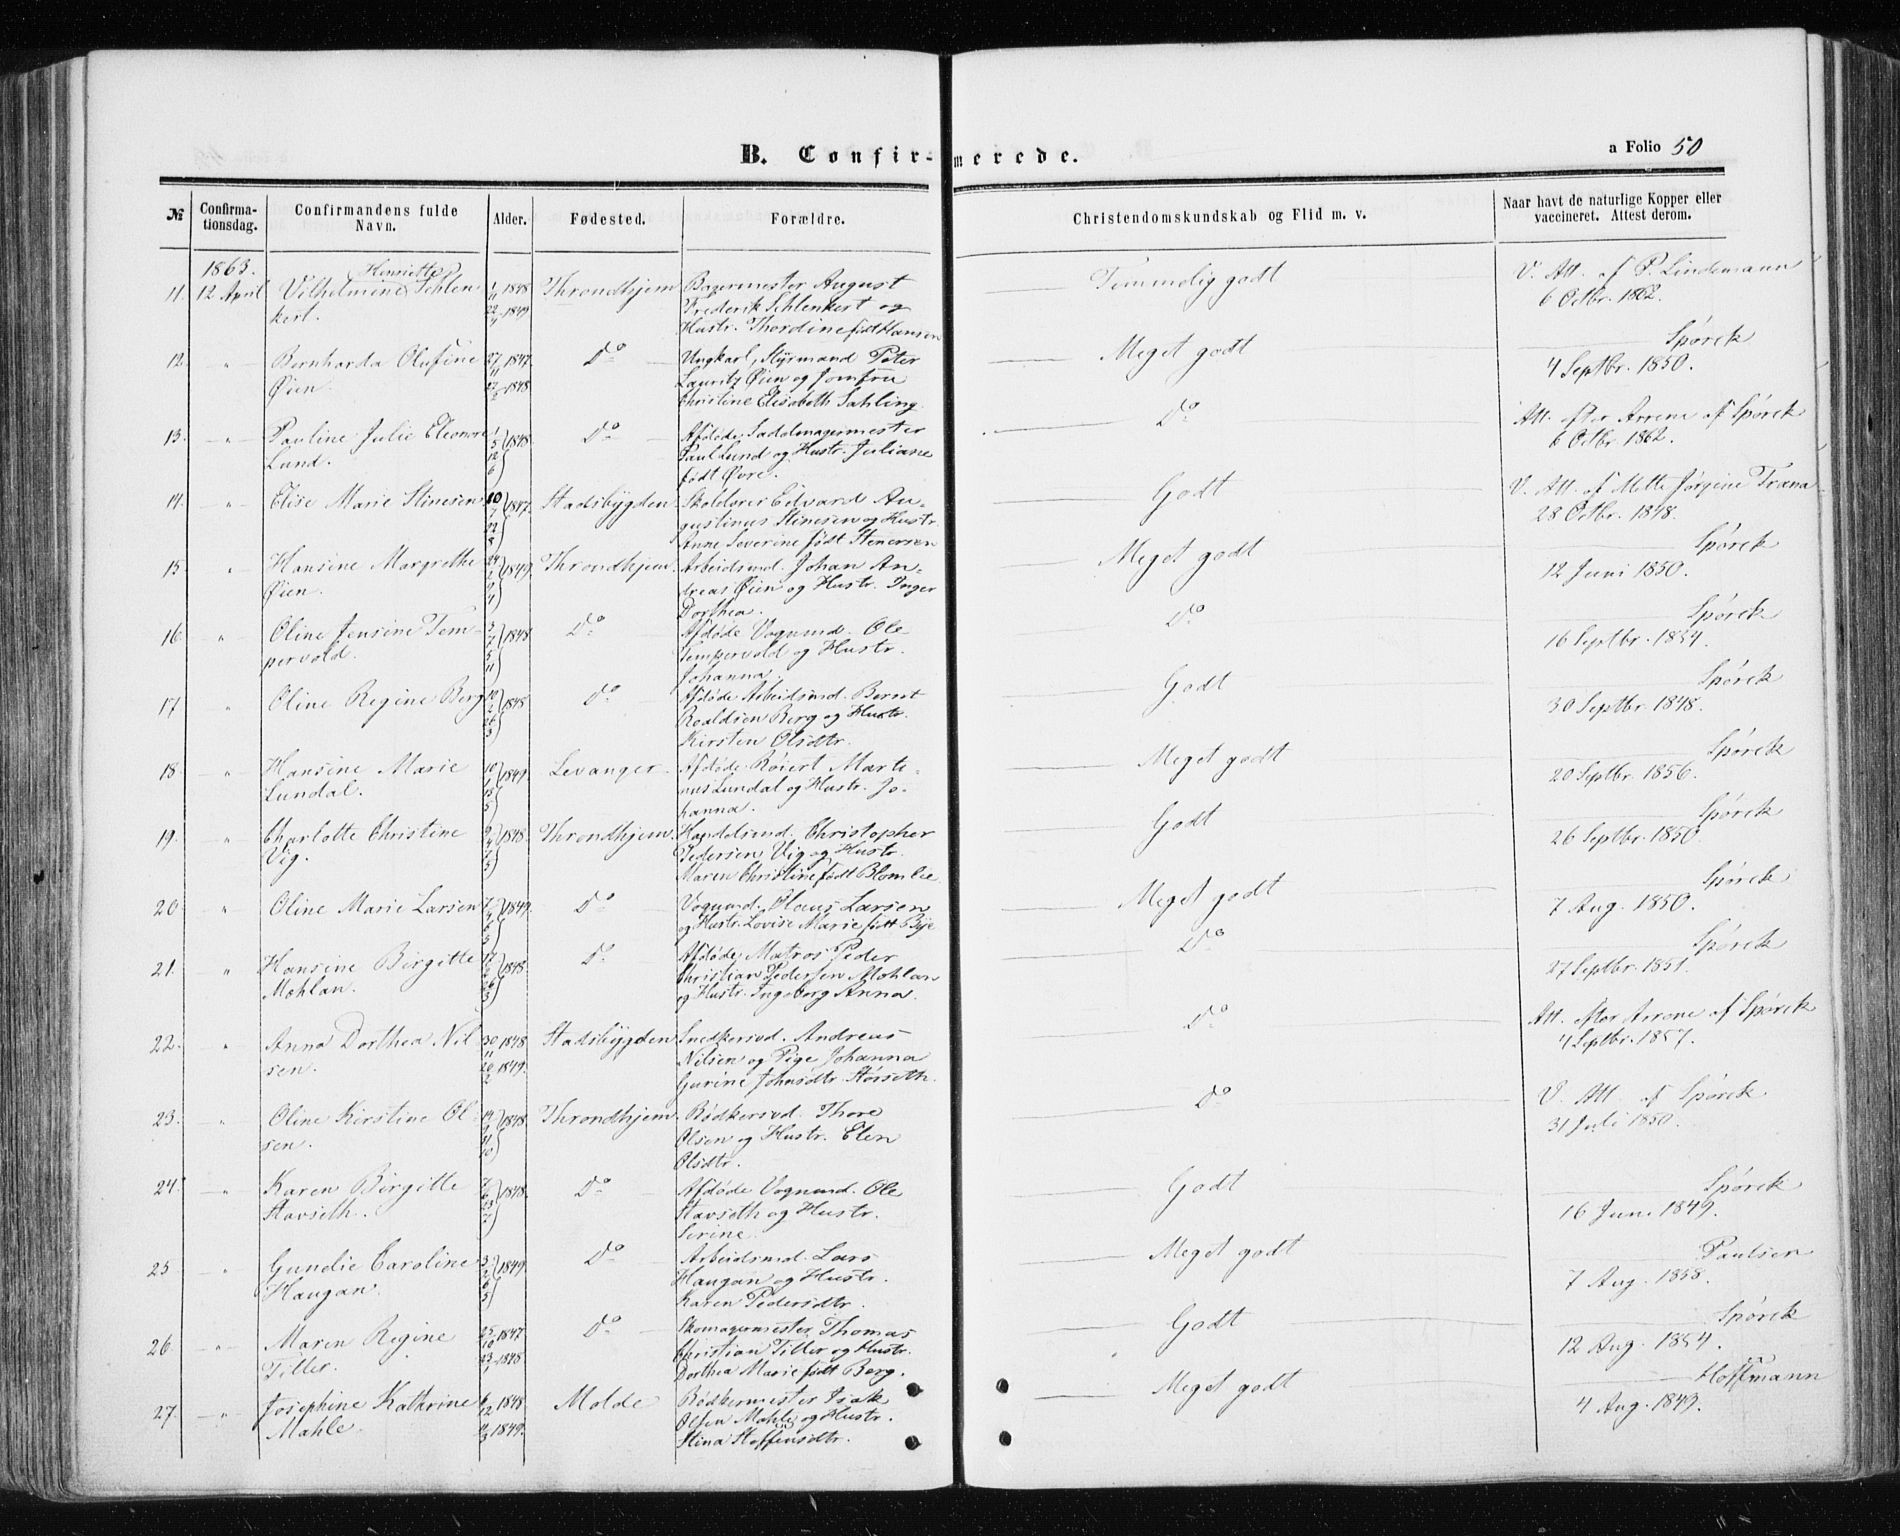 B. Confirmerede.
a Folio 50
№ Confirmationsdag. Confirmandens fulde Navn. Alder. Fødested. Forældre. Christendomskundskab og Flid m. v. Naar havt de naturlige Kopper eller vaccineret. Attest derom.
1863.
Henriette
11. 12 April Vilhelmine Schlen 1/11 1848 Throndhjem Bagermester August Temmelig godt V. Att. af P. Lindemann
kert. 22/4 1849 Frederik Schlenkert og 6 Octbr. 1862.
Hustr. Thordine født Hansen
12. " Bernharda Olufine 27/11 1847. Do Ungkarl, Styrmand Peter Meget godt Spørck
Øien. 1848 Lauritz Øien og Jomfru 4 Septbr. 1850.
Christine Elisabeth Sahling
13. " Pauline Julie Eleonore 1/5 1848 Do Afdøde Sadelmagermester Do Att. efter Arrene af Spørck
Lund. 12/6 Paul Lund og Hustr. Juliane 6 Octbr. 1862.
født Øvre.
14. " Elise Marie Stinesen 10/7 1847. Stadsbygden Skolelærer Edvard Au- Godt V. Att. af Mette Jørgine Trana
22/8 gustinus Stinesen og Hustr. 28 Octbr. 1848.
Anne Severine født Stenersen
15. " Hansine Margrethe 24/1 1849. Throndhjem. Arbeidsmd. Johan An- Meget godt Spørck
Øien. dreas Øien og Hustr. Inger 12 Juni 1850.
Dorthea.
16. " Oline Jensine Tem- 1848. Do Afdøde Vognmd. Ole Do Spørck
pervold. 5/11 Tempervold og Hustr. 16 Septbr. 1854.
Johanna.
17. " Oline Regine Berg 10/2 1848 Do Afdøde Arbeidsmd. Bernt Godt Spørck
26/3 Roaldsen Berg og Hustr. 30 Septbr. 1848.
Kirsten Olsdtr.
18. " Hansine Marie 10/1 1849. Levanger. Afdøde Røiert Marti- Meget godt Spørck
Lundal. 18/5 nus Lundal og Hustr. Jo- 20 Septbr. 1856.
hanna.
19. " Charlotte Christine 1848. Throndhjem. Handelsmd. Christopher Godt Spørck
Vig. Pedersen Vig og Hustr. 26 Septbr. 1850.
Maren Christine født Blomlie
20. " Oline Marie Larsen 1849. Do Vognmd. Olaus Larsen Meget godt Spørck
og Hustr. Lovise Marie født Bye 7 Aug. 1850.
21. " Hansine Birgitte 1848. Do Afdøde Matros Peder Do Spørck
Mohlan. 26/3 Christian Pedersen Mohlan 27 Septbr. 1851.
og Hustr. Ingeborg Anna.
22. " Anna Dorthea Nil 30/11 1848 Stadsbygden Snedkersvd. Andreas Do Att. efter Arrene af Spørck
sen. 20/2 1849. Nilsen og Pige Johanna 4 Septbr. 1857.
Gurine Johnsdtr. Størseth.
23. " Oline Kirstine Ol- 1848. Throndhjem. Bødkersvd. Thore Do V. Att. af Spørck
sen. Olsen og Hustr. Elen 31 Juli 1850.
Olsdtr.
24. " Karen Birgitte 1848. Do Afdøde Vognmd. Ole Godt Spørck
Stavseth. Stavseth og Hustr. 16 Juni 1849.
Serine.
25 " Gundie Caroline 1849. Do Arbeidsmd. Lars Meget godt Paulsen
Haugan. Haugan og Hustr. 7 Aug. 1858.
Karen Pedersdtr.
26. " Maren Regine 25/10 1847 Do Skomagermester Thomas Godt Spørck
Tiller. 23/1 1848 Christian Tiller og Hustr. 12 Aug. 1854.
Dorthea Marie født Berg.
27. " Josephine Kathrine 6/12 1848 Molde Bødkermester Isak Meget godt Hoffmann
Mahle. 1849. Olsen Mahle og Hustr. 4 Aug. 1849.
Stina Steffensdtr.